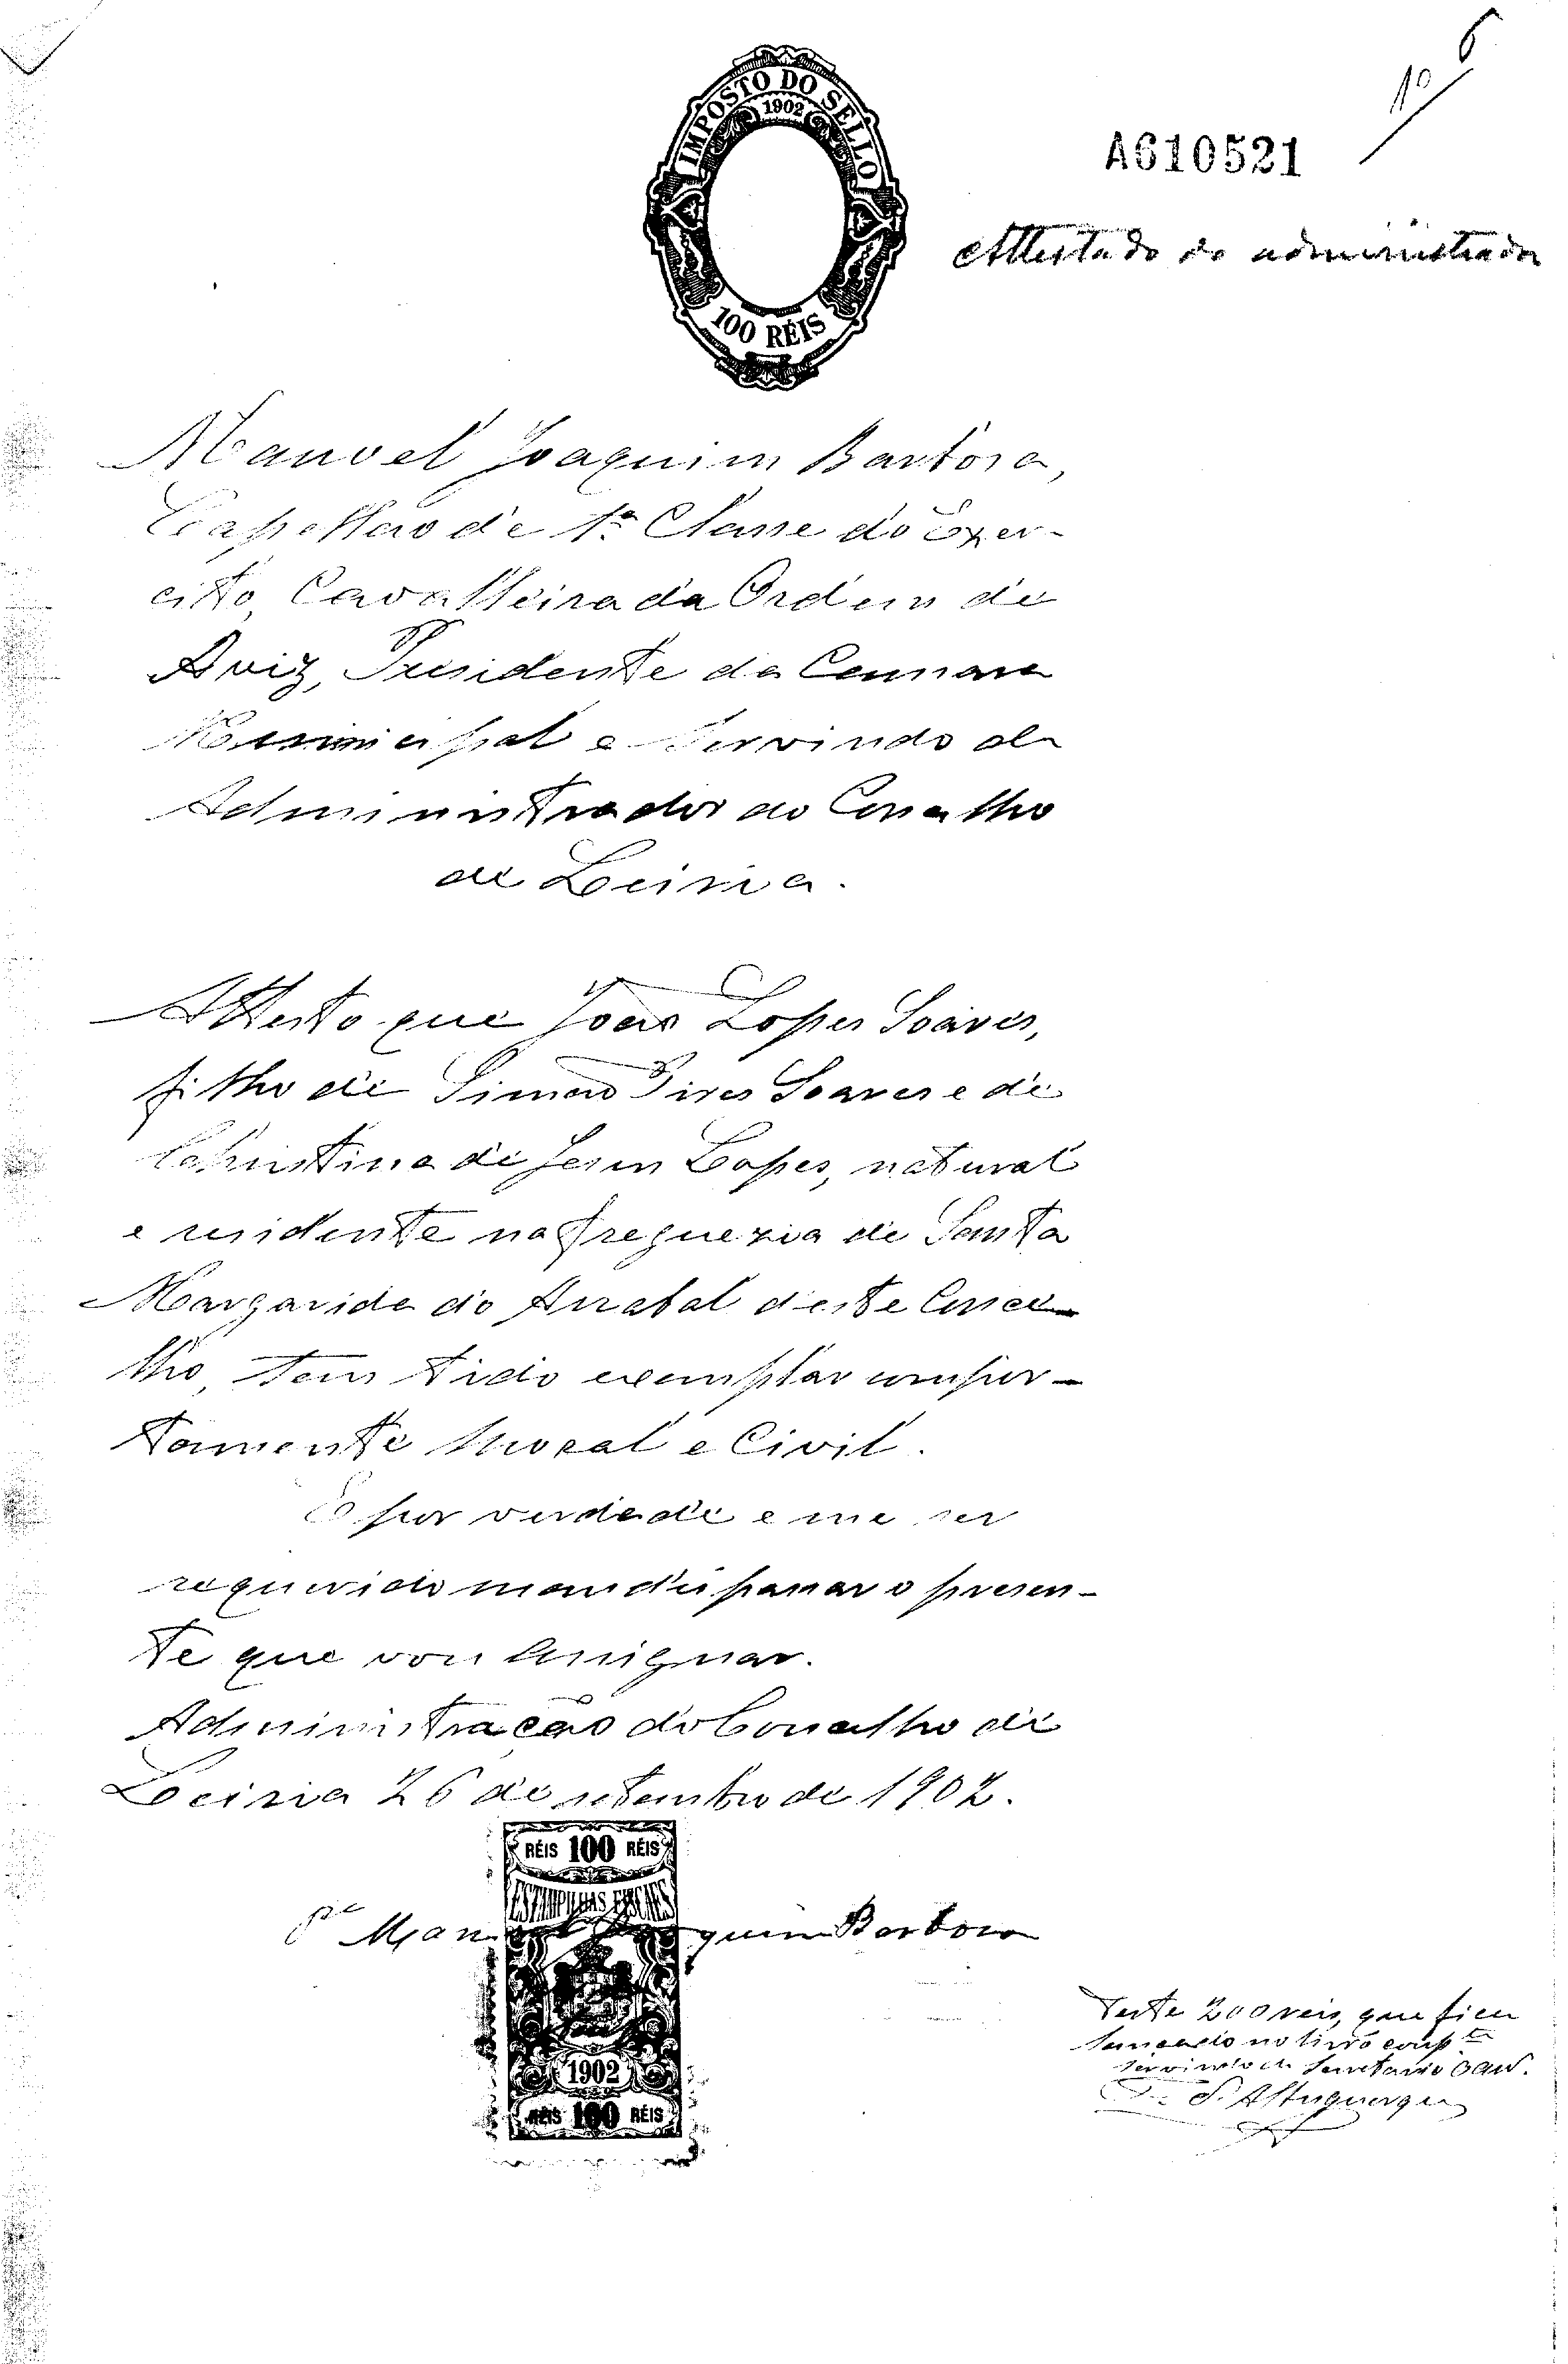 Nº 6
IMPOSTO DO SELLO
1902
100 RÉIS
A610521
Attestado do administrador
Manoel Joaquim Barbosa,
Capellão de 1ª Classe do Exer-
cito, Cavalleiro da Ordem de
Aviz, Presidente da Camara
Municipal e servindo de
Administrador do Concelho
de Leiria.
Attesto que João Lopes Soares,
filho de Simão Pires Soares e de
Christina de Jesus Lopes, natural
e residente na freguezia de Santa
Margarida do Arrabal d'este Conce-
lho, tem tido exemplar compor-
tamento moral e Civil.
E por verdade e me ser
requerido mandei passar o presen-
te que vou assignar.
Administração do Concelho de
Leiria 26 de setembro de 1902.
RÉIS 100 RÉIS
ESTAMPILHAS FISCAES
Pe Manoel Joaquim Barbosa
1902
RÉIS 100 RÉIS
Deste 200 reis, que fica
lançado no livro compte
servindo de Secretario
S. Albuquerque